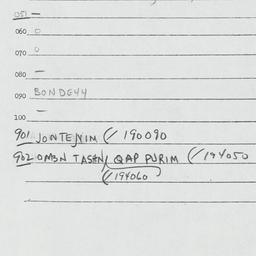 051 –
060 0
070 0
080 –
090 BONDE44
100 –
901 JONTENIM (/190090
902 OMBN TASHN/ QAP PURIM (/194050
(/194060)